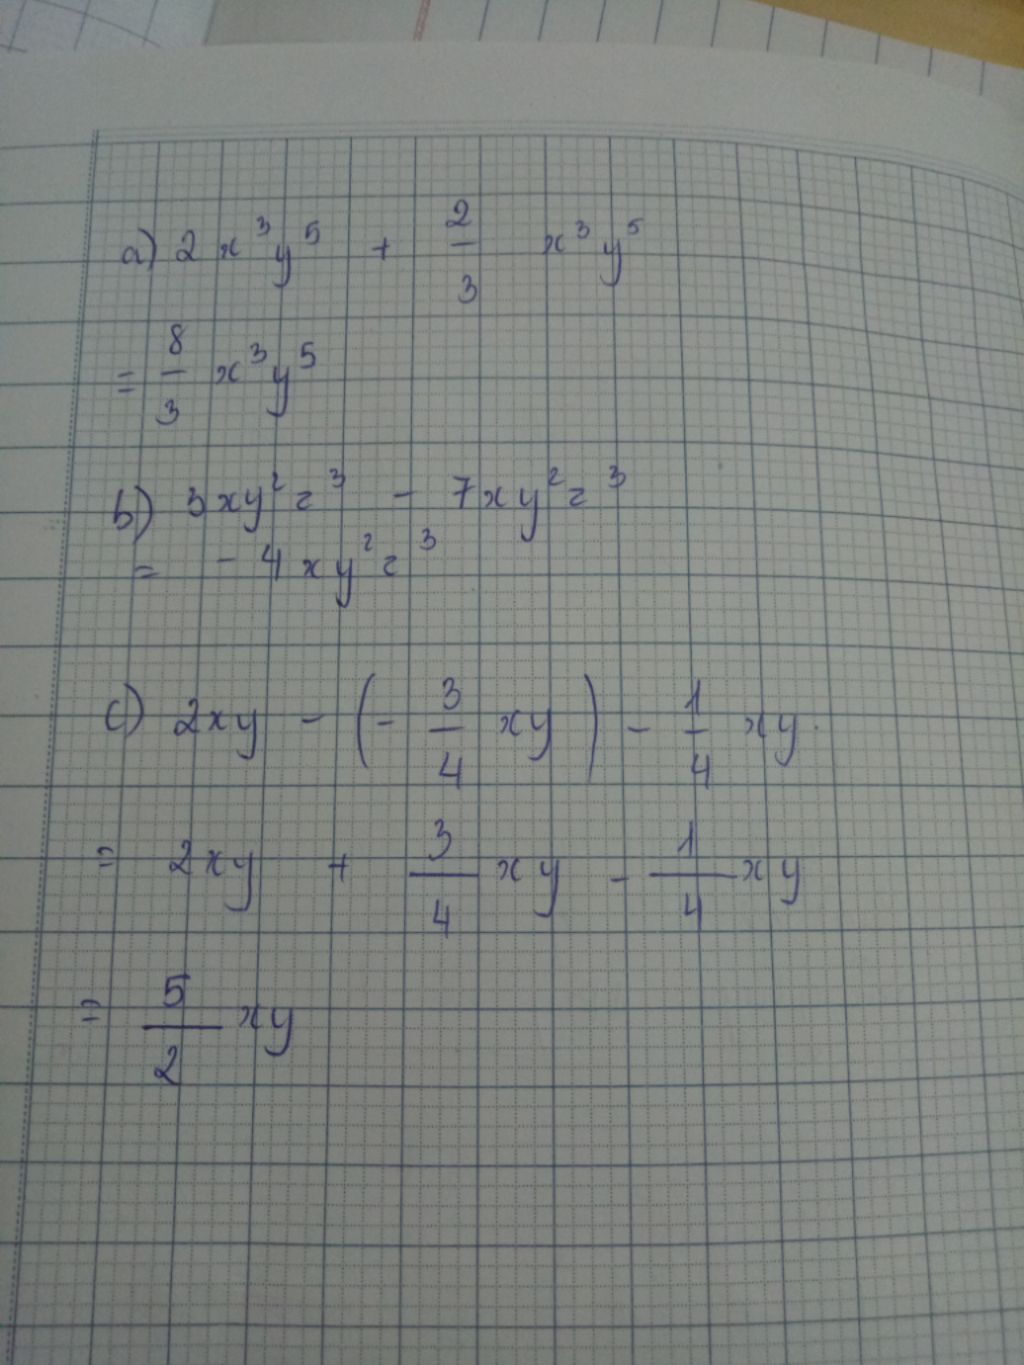 a) 2 x³y⁵ + 2/3 x³y⁵
= 8/3 x³y⁵
b) 3xy²z³ - 7xy²z³
= - 4xy²z³
c) 2xy - (- 3/4 xy) - 1/4 xy.
= 2xy + 3/4 xy - 1/4 xy
= 5/2 xy